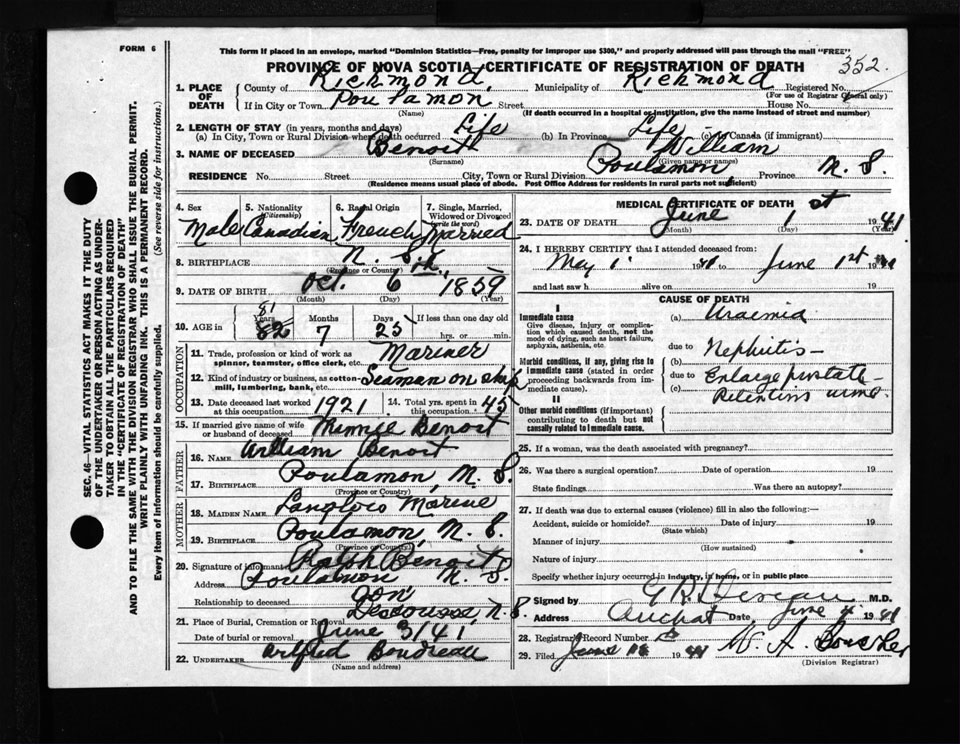 FORM 6
This form if placed in an envelope, marked "Dominion Statistics—Free, penalty for improper use $300," and properly addressed will pass through the mail "FREE"
PROVINCE OF NOVA SCOTIA—CERTIFICATE OF REGISTRATION OF DEATH 352.
1. PLACE OF DEATH County of Richmond, Municipality of Richmond Registered No.
(For use of Registrar General only)
If in City or Town Poulamon, Street House No.
(Name) (If death occurred in a hospital or institution, give the name instead of street and number)
2. LENGTH OF STAY (in years, months and days)
(a) In City, Town or Rural Division where death occurred Life (b) In Province Life (c) In Canada (if immigrant)
3. NAME OF DECEASED Benoit William
(Surname) (Given name or names)
RESIDENCE No. Street City, Town or Rural Division Poulamon, Province N. S.
(Residence means usual place of abode. Post Office Address for residents in rural parts not sufficient)
4. Sex Male
5. Nationality (Citizenship) Canadian
6. Racial Origin French
7. Single, Married, Widowed or Divorced (write the word) Married
8. BIRTHPLACE N. S.
(Province or Country)
9. DATE OF BIRTH Oct. 6th, 1859
(Month) (Day) (Year)
10. AGE in Years 81 82 Months 7 Days 25 If less than one day old hrs. or min.
OCCUPATION
11. Trade, profession or kind of work as spinner, teamster, office clerk, etc. Mariner
12. Kind of industry or business, as cotton-mill, lumbering, bank, etc. Seaman on ship
13. Date deceased last worked at this occupation 1921 14. Total yrs. spent in this occupation 45
15. If married give name of wife or husband of deceased Minnie Benoit
FATHER
16. NAME William Benoit
17. BIRTHPLACE Poulamon, N. S.
(Province or Country)
MOTHER
18. MAIDEN NAME Langlois
19. BIRTHPLACE Poulamon, N. S.
(Province or Country)
20. Signature of informant Ralph Benoit
Address Poulamon, N. S.
Relationship to deceased Son
21. Place of Burial, Cremation or Removal Descousse, N. S.
Date of burial or removal June 3/41
22. UNDERTAKER Wilfred Boudreau
(Name and address)
MEDICAL CERTIFICATE OF DEATH
23. DATE OF DEATH June 1st 1941
(Month) (Day) (Year)
24. I HEREBY CERTIFY that I attended deceased from:
May 1 1941 to June 1st 1941
and last saw h alive on 19
CAUSE OF DEATH
I
Immediate cause
Give disease, injury or complication which caused death, not the mode of dying, such as heart failure, asphyxia, asthenia, etc.
(a) Uraemia
due to
Morbid conditions, if any, giving rise to immediate cause (stated in order proceeding backwards from immediate cause).
(b) Nephritis
due to
(c) Enlarge prostate
Retention urine
II
Other morbid conditions (if important) contributing to death but not causally related to immediate cause.
25. If a woman, was the death associated with pregnancy?
26. Was there a surgical operation? Date of operation 19
State findings Was there an autopsy?
27. If death was due to external causes (violence) fill in also the following:—
Accident, suicide or homicide? Date of injury 19
(State which)
Manner of injury
(How sustained)
Nature of injury
Specify whether injury occurred in industry, in home, or in public place
Signed by M.D.
Address Arichat Date June 4 1941
28. Registrar's Record Number
29. Filed June 1941 W. A.
(Division Registrar)
SEC. 46—VITAL STATISTICS ACT MAKES IT THE DUTY
OF THE UNDERTAKER OR PERSON ACTING AS UNDER-
TAKER TO OBTAIN ALL THE PARTICULARS REQUIRED
IN THE "CERTIFICATE OF REGISTRATION OF DEATH"
AND TO FILE THE SAME WITH THE DIVISION REGISTRAR WHO SHALL ISSUE THE BURIAL PERMIT.
WRITE PLAINLY WITH UNFADING INK. THIS IS A PERMANENT RECORD.
Every item of information should be carefully supplied. (See reverse side for instructions.)